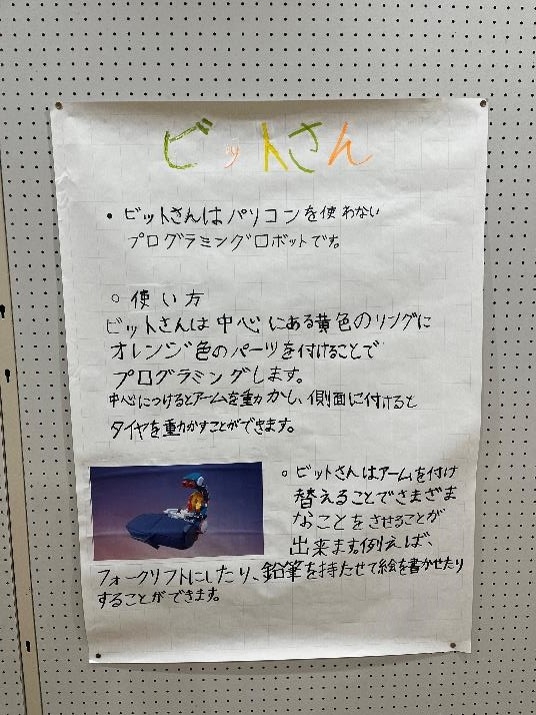 ビットさん
・ビットさんはパソコンを使わない
プログラミングロボットです。
○使い方
ビットさんは中心にある黄色のリングに
オレンジ色のパーツを付けることで
プログラミングします。
中心につけるとアームを動かし、側面に付けると
タイヤを動かすことができます。
○ビットさんはアームを付け
替えることでさまざま
なことをさせることが
出来ます。例えば、
フォークリフトにしたり、鉛筆を持たせて絵を書かせたり
することができます。